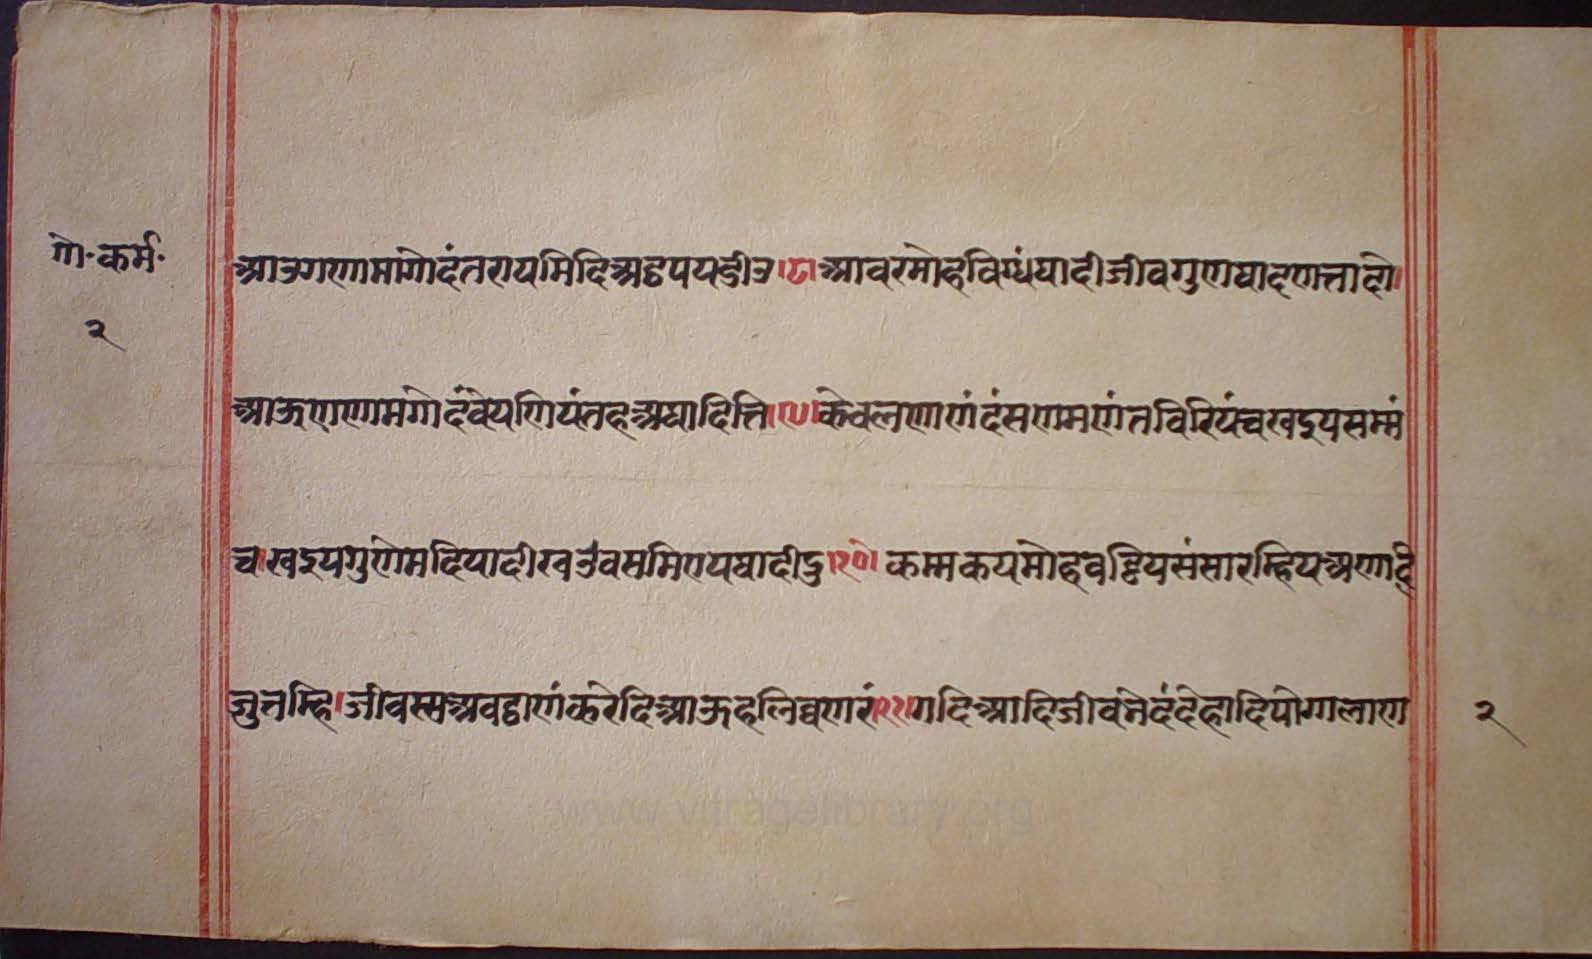 गो॰कर्म॰
२
आउगणामागोदंतरायमिदिअट्ठपयडीउ।८।आवरमोहविग्घंघादीजीवगुणघादणत्तादो।
आऊणणामगोदंवेयणियंतहअघादित्ति।९।केवलणाणंदंसणमणंतविरियंचखइयसम्मं
च।खइयगुणेमदियादीखउवसमिएयघादीदु।१०।कम्मकयमोहवड्ढियसंसारम्हियअणादि
जुत्तम्हि।जीवस्सअवट्ठाणंकरेदिआऊहलिव्वणरं।११।गदिआदिजीवभेदंदेहादिपोग्गलाण
२
www.vitragelibrary.org